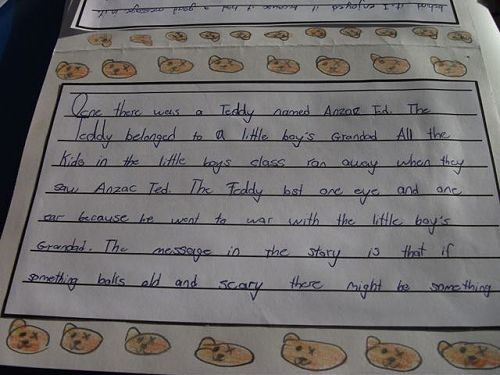 behind it. I enjoyed it because it had a good message in it.
One there was a Teddy named Anzac Ted. The
Teddy belonged to a little boy's Grandad All the
Kids in the little boys class ran away when they
saw Anzac Ted. The Teddy lost one eye and one
ear because he went to war with the little boy's
Grandad. The message in the story is that if
something looks old and scary there might be something